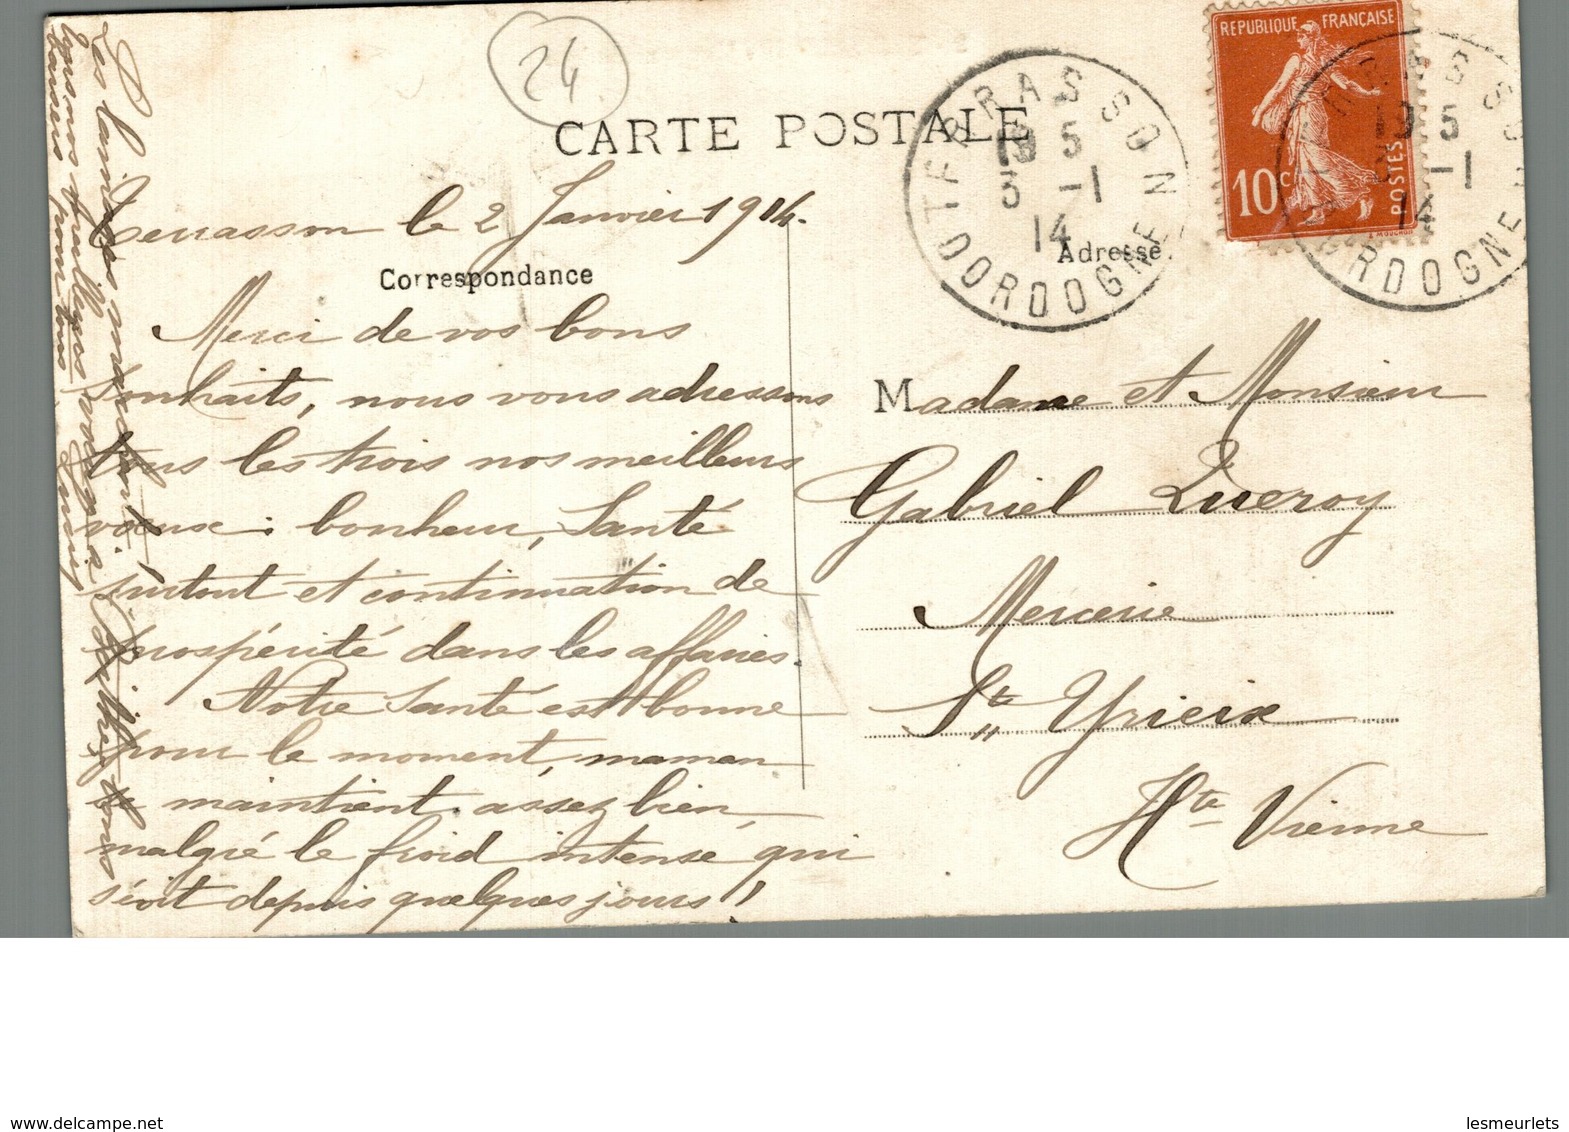 24
CARTE POSTALE
REPUBLIQUE FRANÇAISE
10c POSTES
TERRASSON
19 5
3 -1
14
DORDOGNE
19 5
3 -1
14
DORDOGNE
Terrasson le 2 Janvier 1914.
Correspondance
Adresse
Merci de vos bons
souhaits, nous vous adressons
tous les trois nos meilleurs
voeux: bonheur, Santé
surtout et continuation de
prospérité dans les affaires.
Notre Santé est bonne
pour le moment, maman
se maintient assez bien,
malgré le froid intense qui
sévit depuis quelques jours!!
Madame et Monsieur
Gabriel Queroy
Mercerie
St Yrieix
Hte Vienne
Les laines manquent
bons nos
baisers pour tous
delcampe.net
lesmeurlets